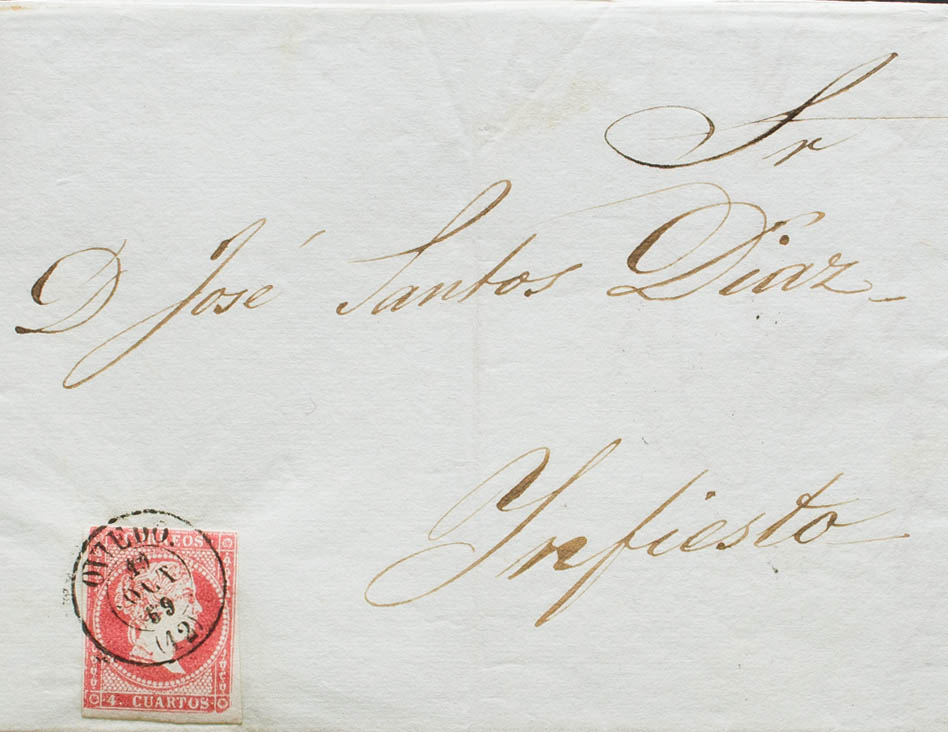 Sr
D José Santos Díaz
Infiesto
OVIEDO.
OCT
59
(12)
4 CUARTOS